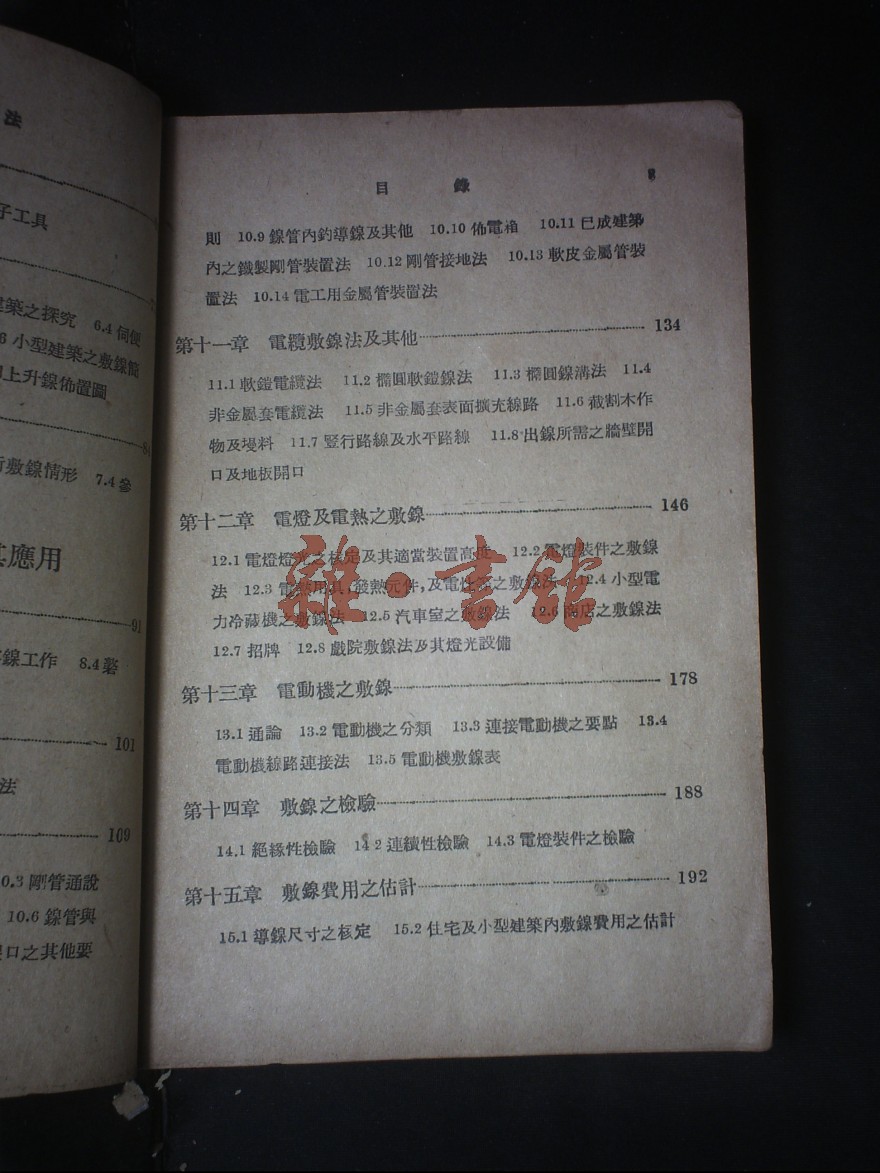 法
子工具
建築之探究 6.4 伺便
6 小型建築之敷線簡
用上升線佈置圖
84
行敷線情形 7.4 參
其應用
91
線工作 8.4 礬
101
法
109
0.3 剛管通說
10.6 線管與
之其他要
目 錄
則 10.9 線管內釣導線及其他 10.10 佈電箱 10.11 已成建築
內之鐵製剛管裝置法 10.12 剛管接地法 10.13 軟皮金屬管裝
置法 10.14 電工用金屬管裝置法
第十一章 電纜敷線法及其他 134
11.1 軟鎧電纜法 11.2 橢圓軟鎧線法 11.3 橢圓線溝法 11.4
非金屬套電纜法 11.5 非金屬套表面擴充線路 11.6 截割木作
物及墁料 11.7 豎行路線及水平路線 11.8 出線所需之牆壁開
口及地板開口
第十二章 電燈及電熱之敷線 146
12.1 電燈燈光之核定及其適當裝置高度 12.2 電燈裝件之敷線
法 12.3 電熱用具,發熱元件,及電灶之敷線法 12.4 小型電
力冷藏機之敷線法 12.5 汽車室之敷線法 12.6 商店之敷線法
12.7 招牌 12.8 戲院敷線法及其燈光設備
雜·書館
第十三章 電動機之敷線 178
13.1 通論 13.2 電動機之分類 13.3 連接電動機之要點 13.4
電動機線路連接法 13.5 電動機敷線表
第十四章 敷線之檢驗 188
14.1 絕緣性檢驗 14 2 連續性檢驗 14.3 電燈裝件之檢驗
第十五章 敷線費用之估計 192
15.1 導線尺寸之核定 15.2 住宅及小型建築內敷線費用之估計